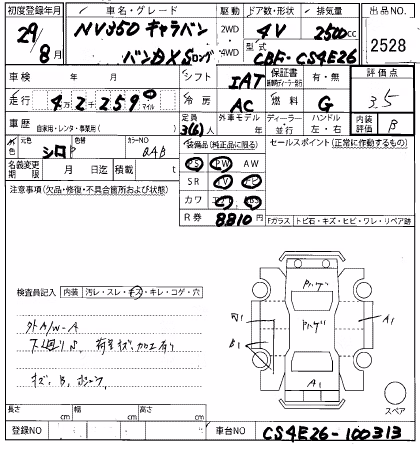 初度登録年月 車名・グレード ドア数・形状 排気量 出品NO.
29/8月 NV350キャラバン 2WD 4V 2500cc 2528
バンDXSロング 4WD 型式 CBF-CS4E26
車検 年 月 シフト IAT 保証書 有・無 評価点
走行 4万2千259 マイル 冷房 AC 燃料 G 3.5
車歴 自家用・レンタ・事業用( ) 定員 3(6)人 外車モデル ディーラー・並行 ハンドル 左・右 内装 B
外色 元色 シロ 色替 カラーNO QAB 装備品(純正品に限る) セールスポイント(正常に作動するもの)
名義変更期限 月 日迄 積載 t PS PW AW
注意事項(欠品・修復・不具合箇所および状態) SR TV ナビ
カワ エアB ABS
R券 8810円 Fガラス トビ石・キズ・ヒビ・ワレ・リペア跡
検査員記入 内装 汚レ・スレ・キズ・キレ・コゲ・穴
外A/W-A
下廻りS 荷室キズ、加工有り
キズ、B、
A1
B1
A1
スペア
長さ cm 幅 cm 高さ cm
登録NO 車台NO CS4E26-100313